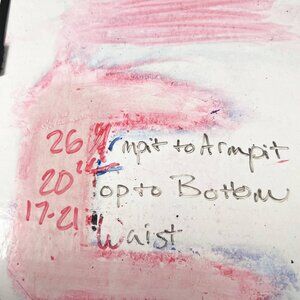 26" Armpit to Armpit
20" Top to Bottom
17-21" Waist